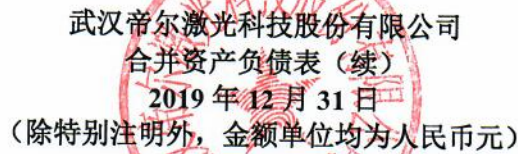 武汉帝尔激光科技股份有限公司
合并资产负债表（续）
2019 年 12 月 31 日
（除特别注明外，金额单位均为人民币元）